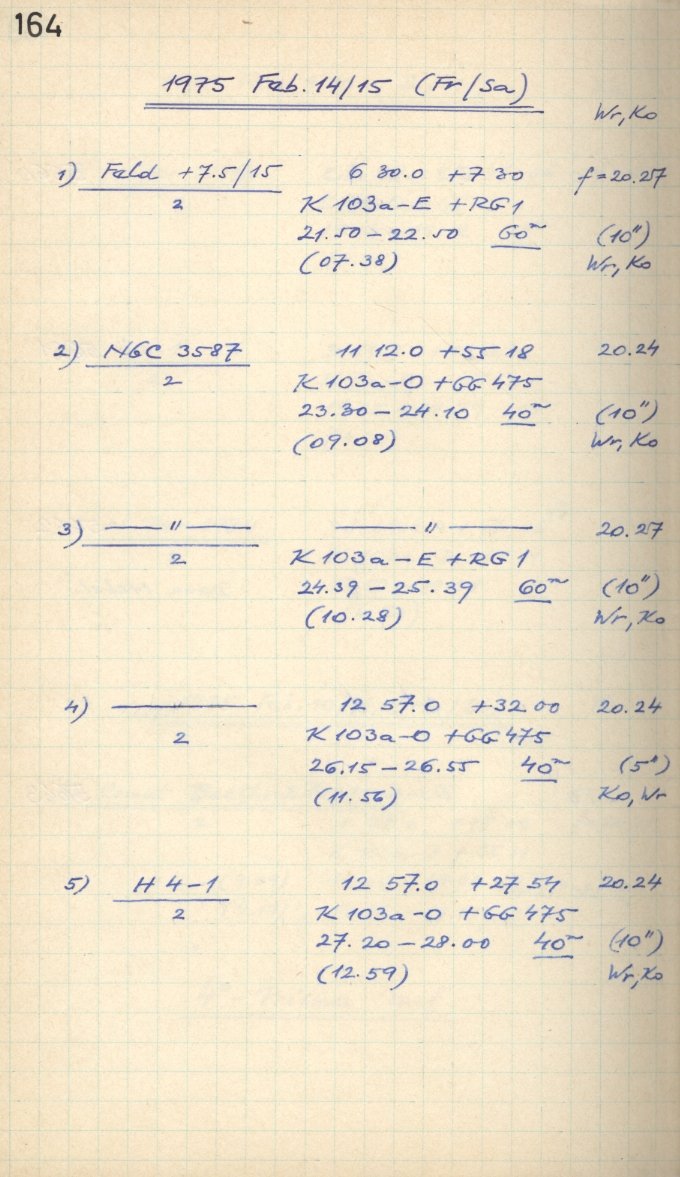 164
1975 Feb. 14/15 (Fr/Sa)
Wr, Ko
1) Feld +7.5/15 6 30.0 +7 30 f=20.27
2 K 103a-E +RG1
21.50 – 22.50 60ᵐ (10")
(07.38) Wr, Ko
2) NGC 3587 11 12.0 +55 18 20.24
2 K 103a-O +GG 475
23.30 – 24.10 40ᵐ (10")
(09.08) Wr, Ko
3) —— " —— —— " —— 20.27
2 K 103a-E +RG1
24.39 – 25.39 60ᵐ (10")
(10.28) Wr, Ko
4) —— " —— 12 57.0 +32 00 20.24
2 K 103a-O +GG 475
26.15 – 26.55 40ᵐ (5")
(11.56) Ko, Wr
5) H 4-1 12 57.0 +27 54 20.24
2 K 103a-O +GG 475
27.20 – 28.00 40ᵐ (10")
(12.59) Wr, Ko